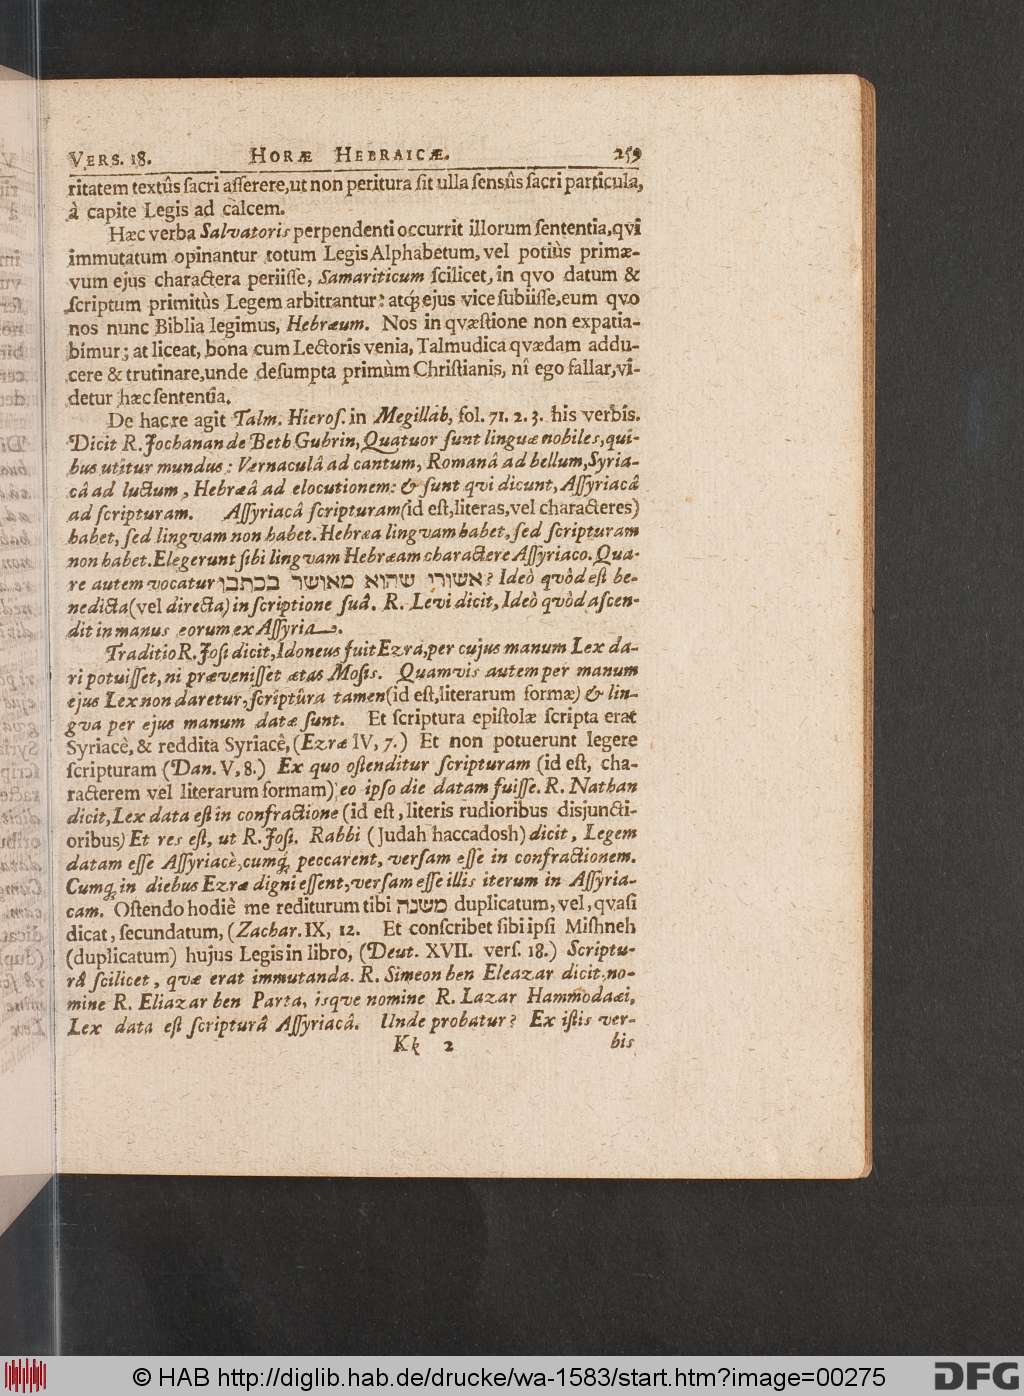 VERS. 18. HORÆ HEBRAICÆ. 259
ritatem textûs ſacri aſſerere,ut non peritura ſit ulla ſensûs ſacri particula,
à capite Legis ad calcem.
Hæc verba Salvatoris perpendenti occurrit illorum ſententia,qvi
immutatum opinantur totum Legis Alphabetum, vel potiùs primæ-
vum ejus charactera periiſſe, Samariticum ſcilicet, in qvo datum &
ſcriptum primitùs Legem arbitrantur: atq; ejus vice ſubiiſſe,eum qvo
nos nunc Biblia legimus, Hebræum. Nos in qvæſtione non expatia-
bimur; at liceat, bona cum Lectoris venia, Talmudica qvædam addu-
cere & trutinare,unde deſumpta primùm Chriſtianis, nî ego fallar,vi-
detur hæc ſententia.
De hac re agit Talm. Hieroſ. in Megillah, fol. 71. 2. 3. his verbis.
Dicit R. Jochanan de Beth Gubrin, Quatuor ſunt linguæ nobiles, qui-
bus utitur mundus: Vernaculâ ad cantum, Romanâ ad bellum, Syria-
câ ad luctum, Hebræâ ad elocutionem: & ſunt qvi dicunt, Aſſyriacâ
ad ſcripturam. Aſſyriacâ ſcripturam(id eſt,literas,vel characteres)
habet, ſed lingvam non habet. Hebræa lingvam habet, ſed ſcripturam
non habet. Elegerunt ſibi lingvam Hebræam charactere Aſſyriaco. Qua-
re autem vocatur אשורי שהוא מאושר בכתבו? Ideò qvòd eſt be-
nedicta(vel directa) in ſcriptione ſuâ. R. Levi dicit, Ideò qvòd aſcen-
dit in manus eorum ex Aſſyria.
Traditio R. Joſi dicit, Idoneus fuit Ezra, per cujus manum Lex da-
ri potuiſſet, ni præveniſſet ætas Moſis. Quamvis autem per manum
ejus Lex non daretur, ſcriptûra tamen(id eſt,literarum formæ) & lin-
gva per ejus manum datæ ſunt. Et ſcriptura epiſtolæ ſcripta erat
Syriacè,& reddita Syriacê, (Ezræ IV, 7.) Et non potuerunt legere
ſcripturam (Dan. V, 8.) Ex quo oſtenditur ſcripturam (id eſt, cha-
racterem vel literarum formam) eo ipſo die datam fuiſſe. R. Nathan
dicit, Lex data eſt in confractione (id eſt, literis rudioribus disjuncti-
oribus) Et res eſt, ut R. Joſi. Rabbi (Judah haccadosh) dicit, Legem
datam eſſe Aſſyriacè, cumq; peccarent, verſam eſſe in confractionem.
Cumq; in diebus Ezræ digni eſſent, verſam eſſe illis iterum in Aſſyria-
cam. Oſtendo hodiè me rediturum tibi משנה duplicatum, vel, qvaſi
dicat, ſecundatum, (Zachar. IX, 12. Et conſcribet ſibi ipſi Miſhneh
(duplicatum) hujus Legis in libro, (Deut. XVII. verſ. 18.) Scriptu-
râ ſcilicet, qvæ erat immutanda. R. Simeon ben Eleazar dicit, no-
mine R. Eliazar ben Parta, isqve nomine R. Lazar Hammodaæi,
Lex data eſt ſcripturâ Aſſyriacâ. Unde probatur? Ex iſtis ver-
Kk 2 bis
© HAB http://diglib.hab.de/drucke/wa-1583/start.htm?image=00275
DFG